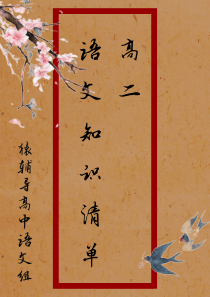 高二
语文知识清单
猿辅导高中语文组